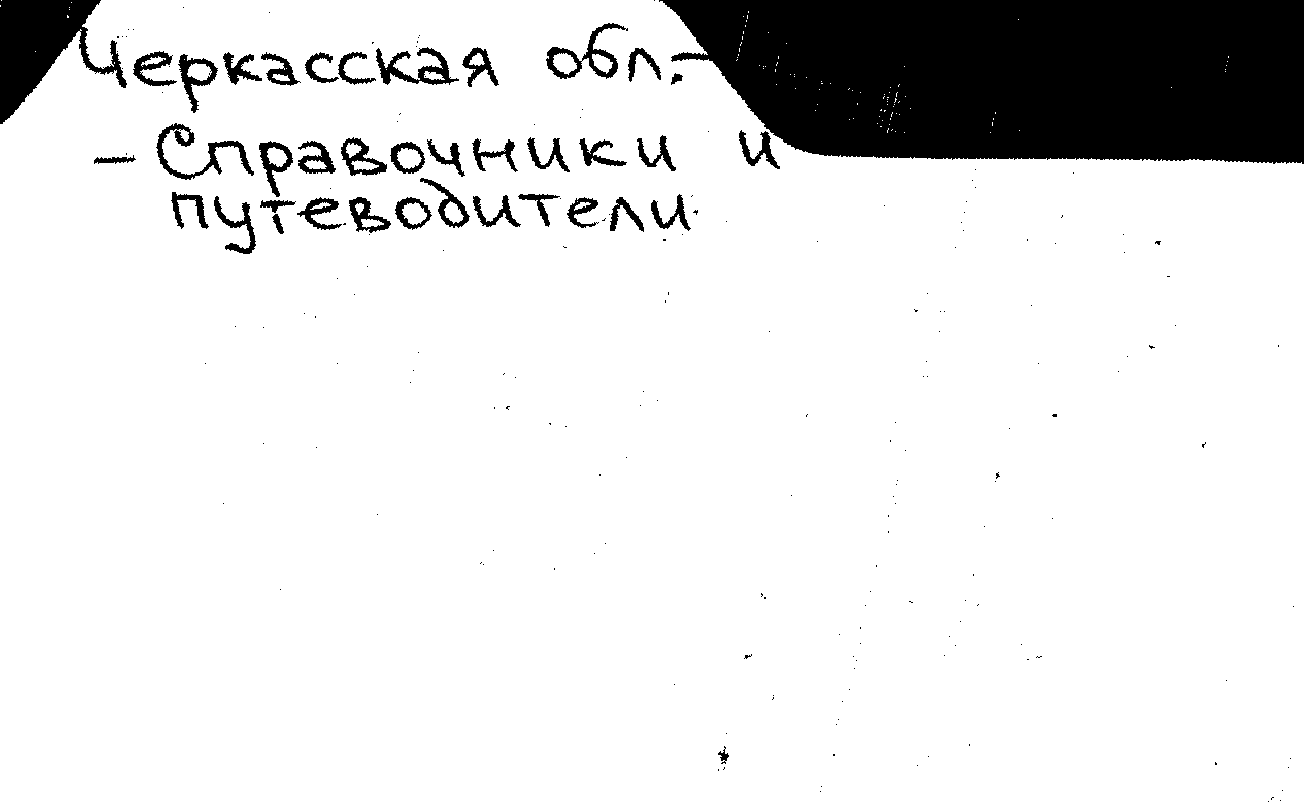 Черкасская обл.-
- Справочники и
путеводители